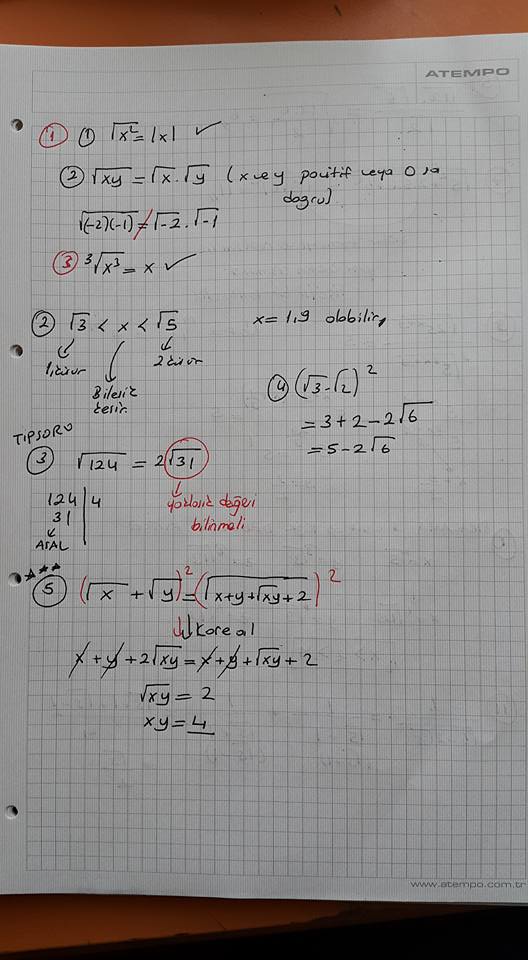 ATEMPO
① ① √x² = |x| ✓
② √xy = √x . √y ( x ve y pozitif veya 0 sa
doğru)
√(-2)(-1) = √-2 . √-1
③ ³√x³ = x ✓
② √3 < x < √5 x = 1,9 olabilir,
1,küsur 2 küsur
Bileşik
kesir
④ (√3 - √2)²
= 3 + 2 - 2√6
= 5 - 2√6
TIPSORU
③ √124 = 2√31
124 | 4
31
ASAL
yaklaşık değeri
bilinmeli
★★★
⑤ (√x + √y)² = (√x+y+√xy+2)²
↓↓ Kare al
x + y + 2√xy = x + y + √xy + 2
√xy = 2
xy = 4
www.atempo.com.tr